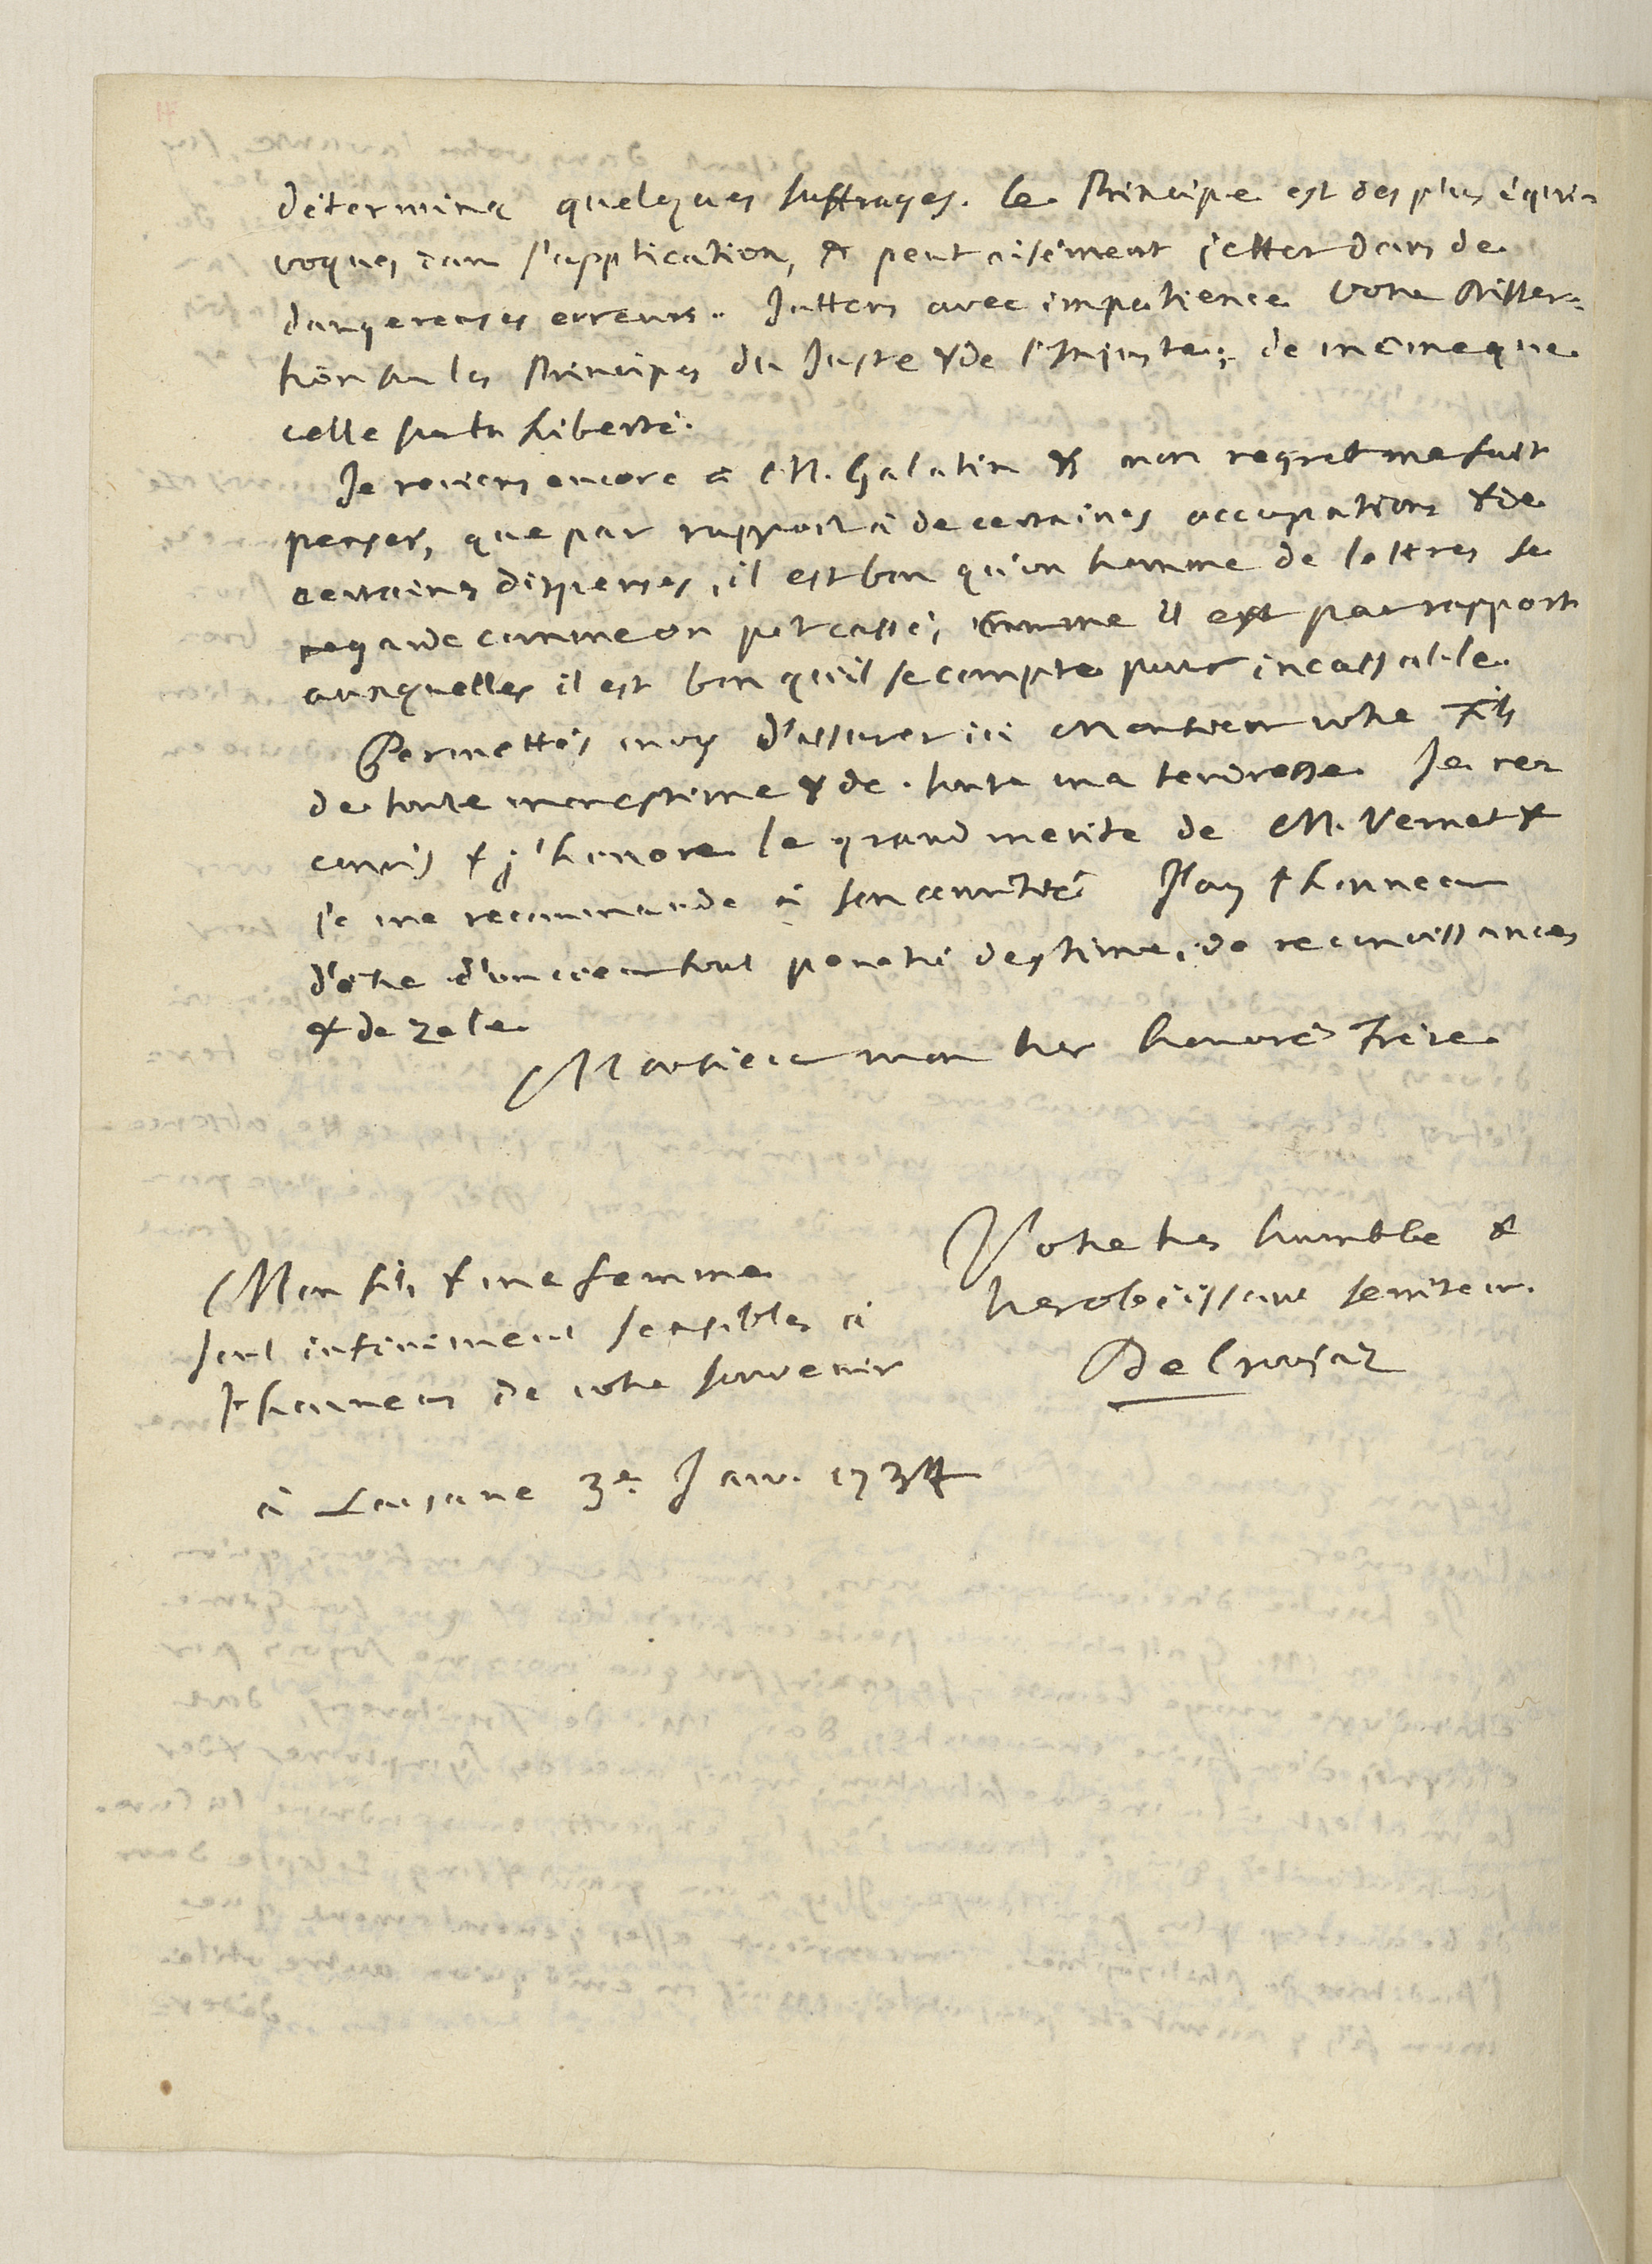 détermine quelques suffrages. Ce Principe est des plus équi-
voques dans l'application, & peut aisément jetter dans de
dangereuses erreurs. J'attens avec impatience votre Disser-
tion sur les Principes du Juste & de l'Injuste; de meme que
celle sur la Liberté.
Je reviens encore à M. Galatin & mon regret me fait
penser, que par rapport à de certaines occupations & de
certaines dispenses, il est bon qu'un homme de lettres se
regarde comme on pot cassé, comme il est par rapport
auxquelles il est bon qu'il se compte pour incassable.
Permettés moy d'assurer ici Monsieur votre Fils
de toute mon estime & de toute ma tendresse. Je con
connois & j'honore le grand merite de M. Vernet &
je me recommande à son amitié J'ay l'honneur
d'être d'un coeur tout penetré d'estime, de reconoissances
& de zele.
Monsieur mon tres honoré Frère.
Votre tres humble &
tres obéissant serviteur.
De Crousaz
Mon fils & ma femme
sont infiniment sensibles à
l'honneur de votre souvenir
à Lausane 3e. Janv. 1734